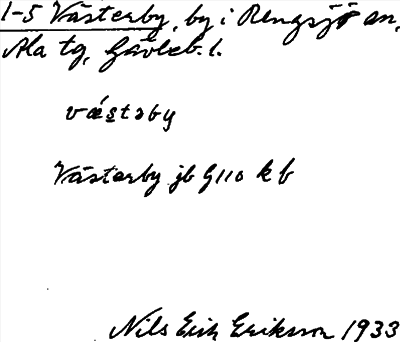 1-5 Västerby, by i Rengsjö sn,
Ala tg, Gävleb. l.
västəby
Västerby jb G110 k b
Nils Erik Eriksson 1933